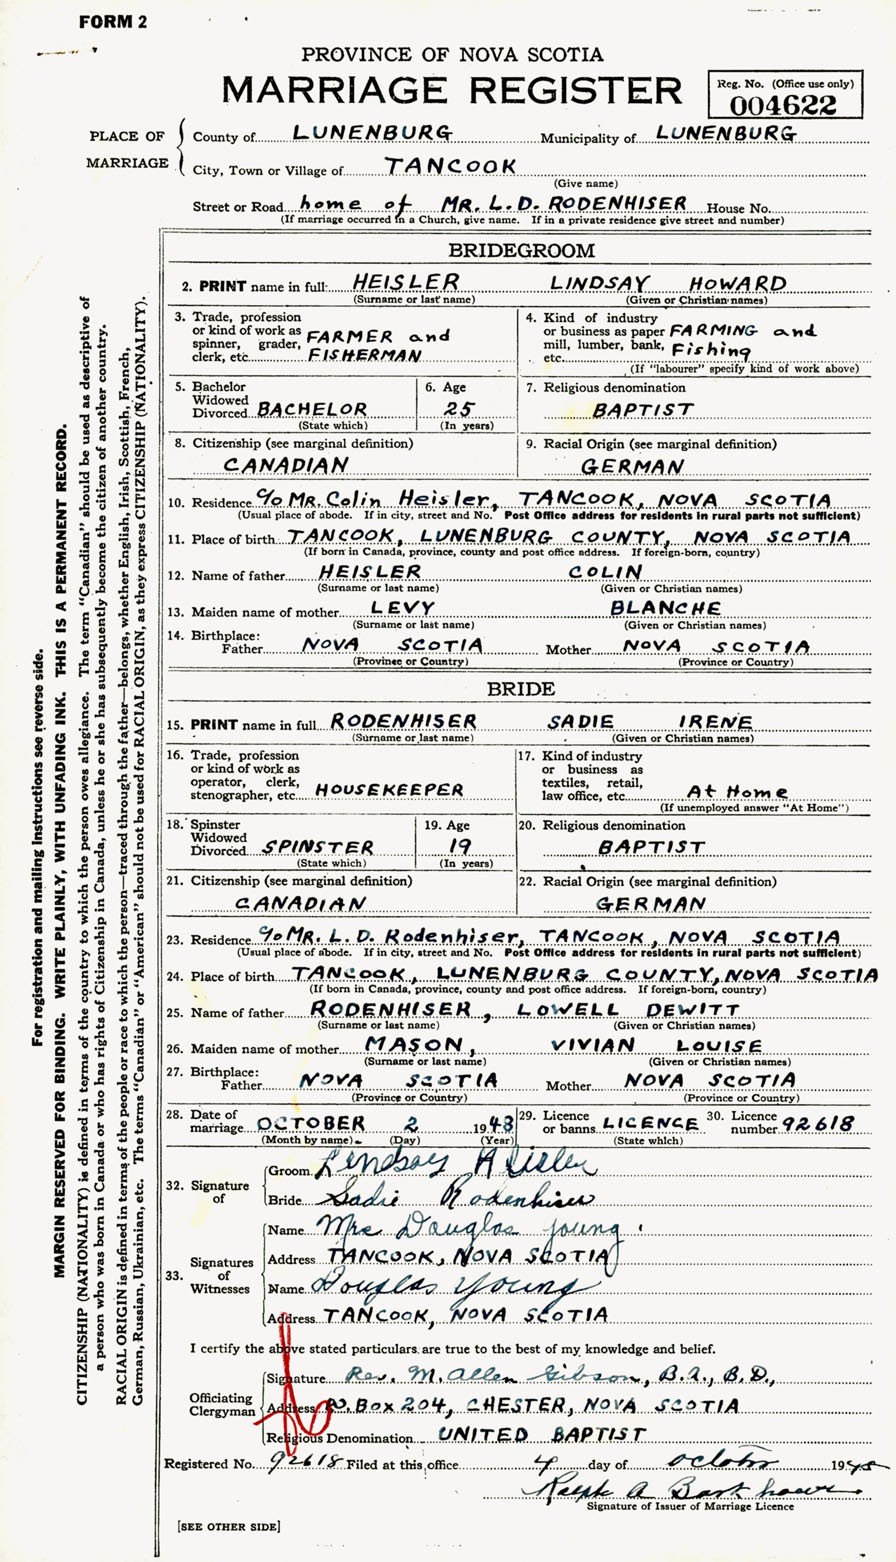 FORM 2
PROVINCE OF NOVA SCOTIA
MARRIAGE REGISTER
Reg. No. (Office use only)
004622
PLACE OF MARRIAGE
County of LUNENBURG Municipality of LUNENBURG
City, Town or Village of TANCOOK
(Give name)
Street or Road home of MR. L. D. RODENHISER House No.
(If marriage occurred in a Church, give name. If in a private residence give street and number)
BRIDEGROOM
2. PRINT name in full HEISLER LINDSAY HOWARD
(Surname or last name) (Given or Christian names)
3. Trade, profession or kind of work as spinner, grader, clerk, etc. FARMER and FISHERMAN
4. Kind of industry or business as paper mill, lumber, bank, etc. FARMING and Fishing
(If "labourer" specify kind of work above)
5. Bachelor Widowed Divorced BACHELOR
(State which)
6. Age 25
(In years)
7. Religious denomination
BAPTIST
8. Citizenship (see marginal definition)
CANADIAN
9. Racial Origin (see marginal definition)
GERMAN
10. Residence c/o MR. Colin Heisler, TANCOOK, NOVA SCOTIA
(Usual place of abode. If in city, street and No. Post Office address for residents in rural parts not sufficient)
11. Place of birth TANCOOK, LUNENBURG COUNTY, NOVA SCOTIA
(If born in Canada, province, county and post office address. If foreign-born, country)
12. Name of father HEISLER COLIN
(Surname or last name) (Given or Christian names)
13. Maiden name of mother LEVY BLANCHE
(Surname or last name) (Given or Christian names)
14. Birthplace:
Father NOVA SCOTIA Mother NOVA SCOTIA
(Province or Country) (Province or Country)
BRIDE
15. PRINT name in full RODENHISER SADIE IRENE
(Surname or last name) (Given or Christian names)
16. Trade, profession or kind of work as operator, clerk, stenographer, etc. HOUSEKEEPER
17. Kind of industry or business as textiles, retail, law office, etc. At Home
(If unemployed answer "At Home")
18. Spinster Widowed Divorced SPINSTER
(State which)
19. Age 19
(In years)
20. Religious denomination
BAPTIST
21. Citizenship (see marginal definition)
CANADIAN
22. Racial Origin (see marginal definition)
GERMAN
23. Residence c/o MR. L. D. Rodenhiser, TANCOOK, NOVA SCOTIA
(Usual place of abode. If in city, street and No. Post Office address for residents in rural parts not sufficient)
24. Place of birth TANCOOK, LUNENBURG COUNTY, NOVA SCOTIA
(If born in Canada, province, county and post office address. If foreign-born, country)
25. Name of father RODENHISER, LOWELL DEWITT
(Surname or last name) (Given or Christian names)
26. Maiden name of mother MASON, VIVIAN LOUISE
(Surname or last name) (Given or Christian names)
27. Birthplace:
Father NOVA SCOTIA Mother NOVA SCOTIA
(Province or Country) (Province or Country)
28. Date of marriage OCTOBER 2 1943
(Month by name) (Day) (Year)
29. Licence or banns LICENCE
(State which)
30. Licence number 92618
32. Signature of
Groom Lindsay Heisler
Bride Sadie Rodenhiser
33. Signatures of Witnesses
Name Mrs Douglas Young
Address TANCOOK, NOVA SCOTIA
Name Douglas Young
Address TANCOOK, NOVA SCOTIA
I certify the above stated particulars are true to the best of my knowledge and belief.
Officiating Clergyman
Signature Rev. M. Allen Gibson, B.A., B.D.,
Address Box 204, CHESTER, NOVA SCOTIA
Religious Denomination UNITED BAPTIST
Registered No. 92618 Filed at this office 4 day of October 19
Ralph A
Signature of Issuer of Marriage Licence
[SEE OTHER SIDE]
For registration and mailing instructions see reverse side.
MARGIN RESERVED FOR BINDING. WRITE PLAINLY, WITH UNFADING INK. THIS IS A PERMANENT RECORD.
CITIZENSHIP (NATIONALITY) is defined in terms of the country to which the person owes allegiance. The term "Canadian" should be used as descriptive of
a person who was born in Canada or who has rights of Citizenship in Canada, unless he or she has subsequently become the citizen of another country.
RACIAL ORIGIN is defined in terms of the people or race to which the person—traced through the father—belongs, whether English, Irish, Scottish, French,
German, Russian, Ukrainian, etc. The terms "Canadian" or "American" should not be used for RACIAL ORIGIN, as they express CITIZENSHIP (NATIONALITY).